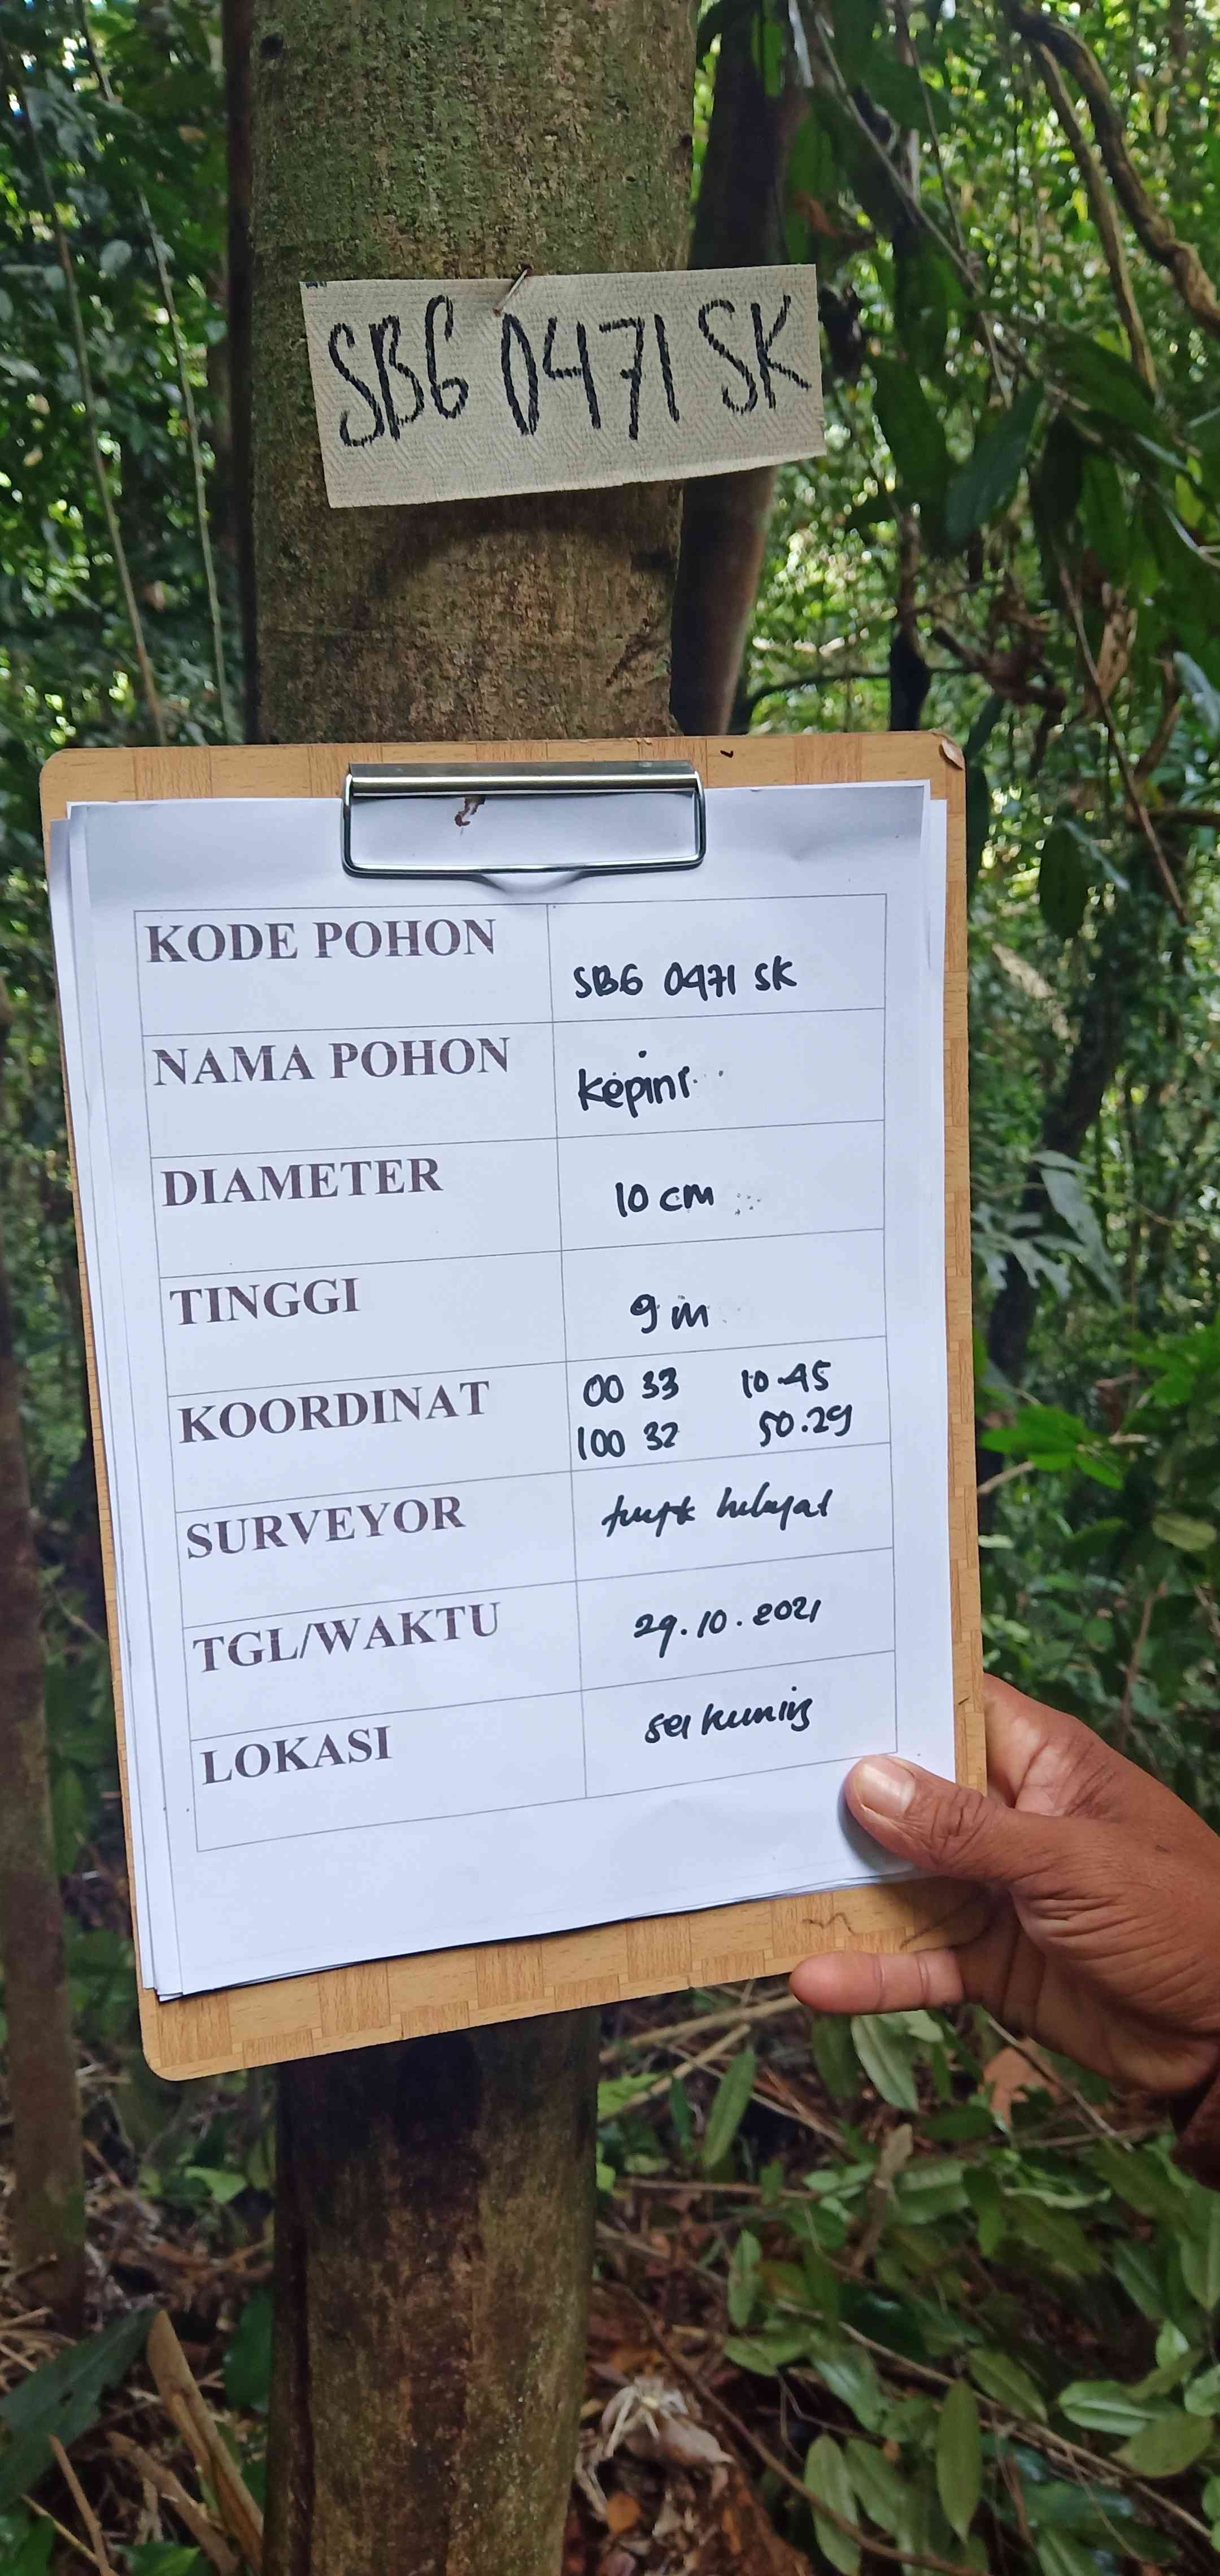 SBG 0471 SK
KODE POHON
SBG 0471 SK
NAMA POHON
Kepini
DIAMETER
10 cm
TINGGI
9 m
KOORDINAT
00 33 10.45
100 32 50.29
SURVEYOR
TGL/WAKTU
29.10.2021
LOKASI
sei kuning